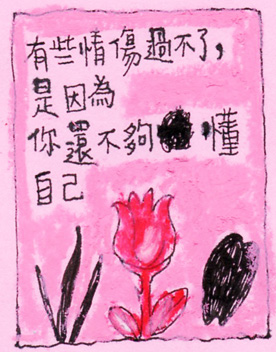 有些情傷過不了，
是因為
你還不夠，懂
自己